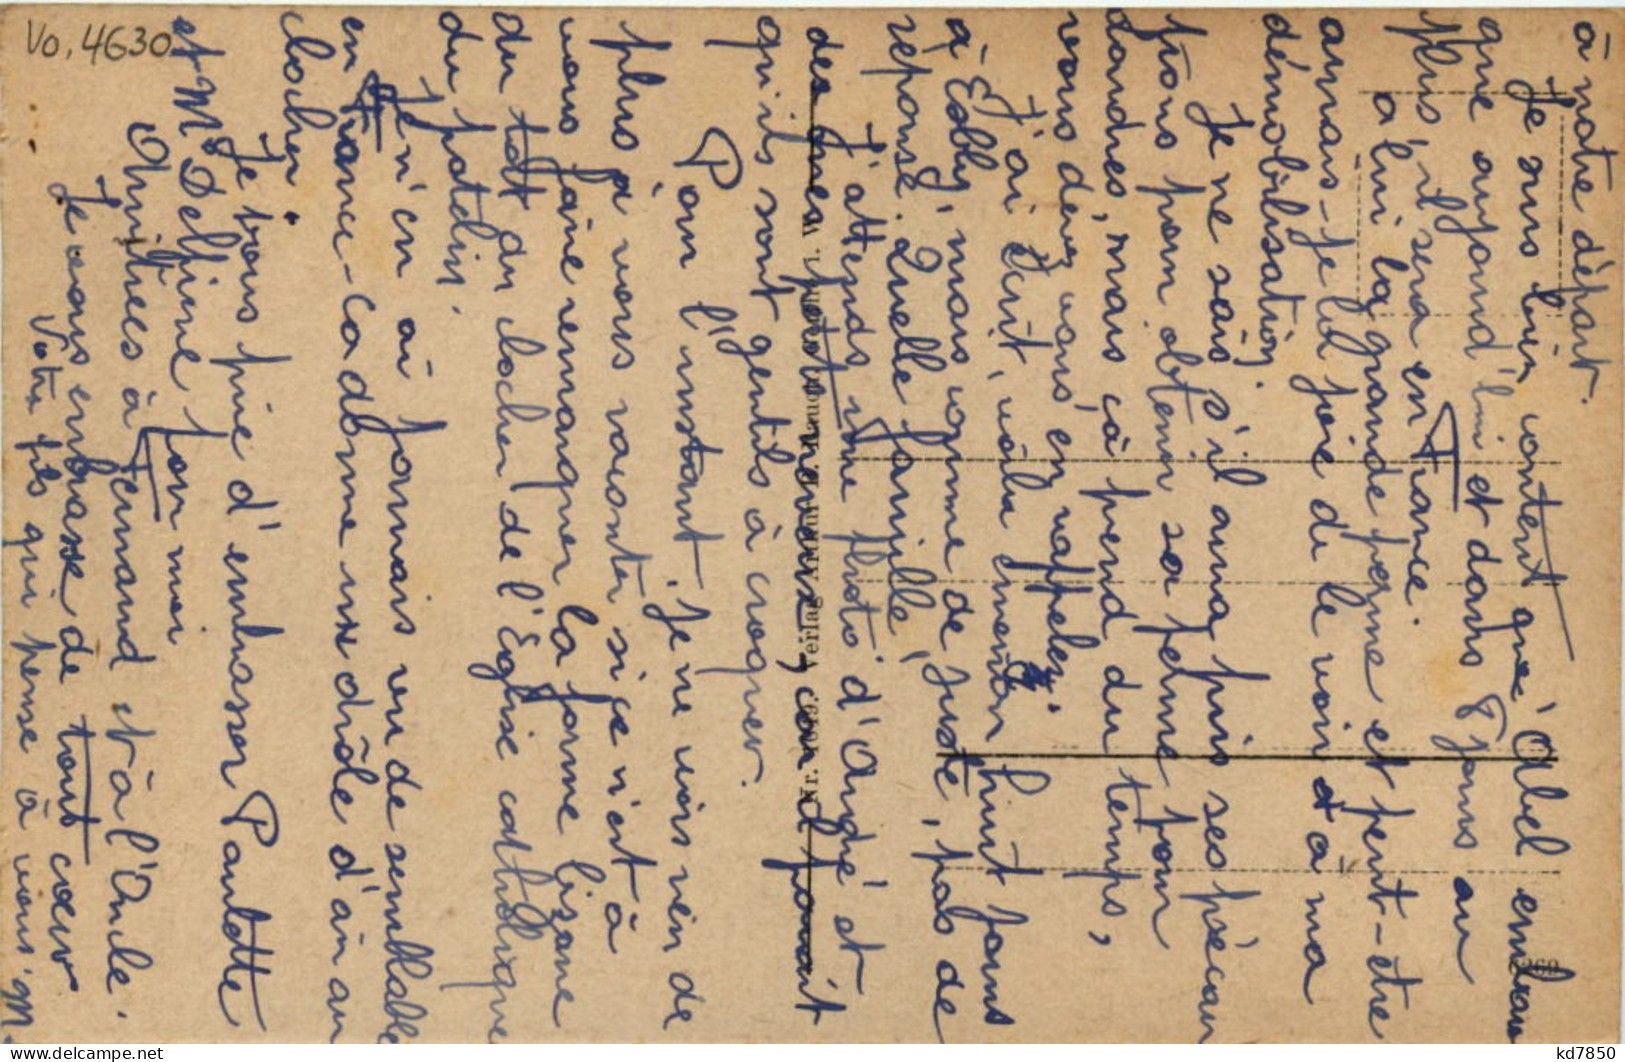 à notre départ.
Je suis bien content que Abel
que aujourd'hui et dans 8 jours au
plus, il sera en France.
à lui la grande peine et peut-être
aurais-je la joie de le voir à ma
démobilisation.
Je ne sais s'il aura pris ses précau
tions pour obtenir sa perme pour
Londres, mais çà prend du temps,
vous devez vous en rappeler.
J'ai écrit, voilà environ huit jours
à Esbly, mais comme de juste, pas de
réponse. Quelle famille!
J'attends une photo d'André et
des
qu'ils sont gentils à croquer.
Pour l'instant, je ne vois rien de
plus à vous raconter si ce n'est à
vous faire remarquer la forme bizarre
du toit du clocher de l'Eglise catholique
du patelin.
Je n'en ai jamais vu de semblable
en France - ça donne un drôle d'air au
clocher.
Je vous prie d'embrasser Paulette
et Me Delphine pour moi
Amitiés à Fernand et à l'Oncle.
Je vous embrasse de tout cœur
Votre fils qui pense à vous. M.
Vo. 4630
Verlag
kd7850